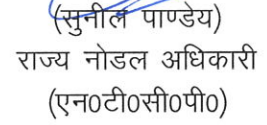 (सुनील पाण्डेय)
राज्य नोडल अधिकारी
(एन0टी0सी0पी0)